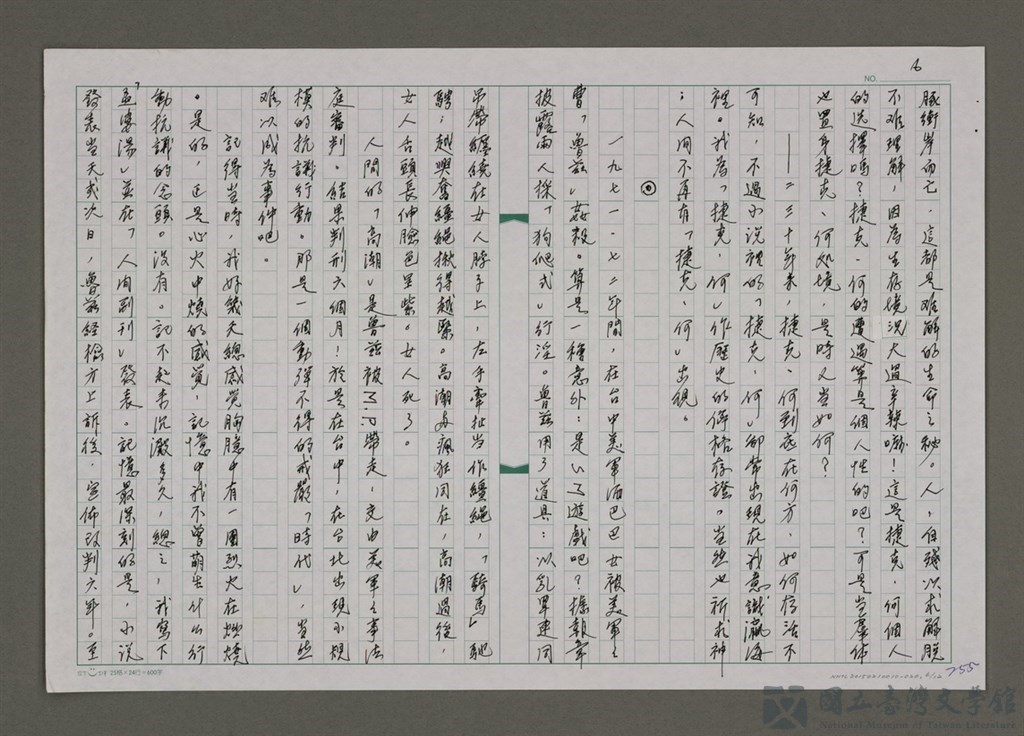 NO. 6
豚衝岸而亡，這都是难解的生命之秘。人，自殘以求解脫
不难理解，因為生存境況大过辛辣嘛！這是捷克·何個人
的选擇嗎？捷克·何的遭遇算是個人性的吧？可是当羣体
也置身捷克·何处境，是時又当如何？
——二三十年来，捷克·何到底在何方，如何存活不
可知，不過小说裡的「捷克·何」卻常出現在我意識瀛海
裡。我為「捷克·何」作歷史的僻格存證。当然也祈求神
：人间不再有「捷克·何」出現。
◎
一九七一、七二年間，在台中美軍酒吧吧女被美軍之
曹「魯茲」姦殺。算是一種意外：是SM遊戲吧？據報章
披露兩人採「狗爬式」行淫。魯茲用了道具：以乳罩連同
吊帶纏繞在女人脖子上，左手牽扯当作繮繩，「騎馬」馳
騁；越興奮繮繩揪得越緊。高潮为瘋狂同在，高潮過後，
女人舌頭長伸臉色呈紫。女人死了。
人間的「高潮」是魯茲被M.P.帶走，交由美軍之事法
庭審判。結果判刑六個月！於是在台中，在台北出現小規
模的抗議行動。那是一個動彈不得的戒嚴「時代」，当然
难以成為事件吧。
記得当時，我好幾天總感覺胸臆中有一團烈火在燃燒
。是的，正是心火中燒的感覺，記憶中我不曾萌生什么行
動抗議的念頭。沒有。記不起来沉澱多久，總之，我寫下
「孟婆湯」並在「人间副刊」發表。記憶最深刻的是，小说
發表当天或次日，魯茲經檢方上訴後，宣佈改判六年。至
23格×24行=600字
755
國立臺灣文學館
National Museum of Taiwan Literature